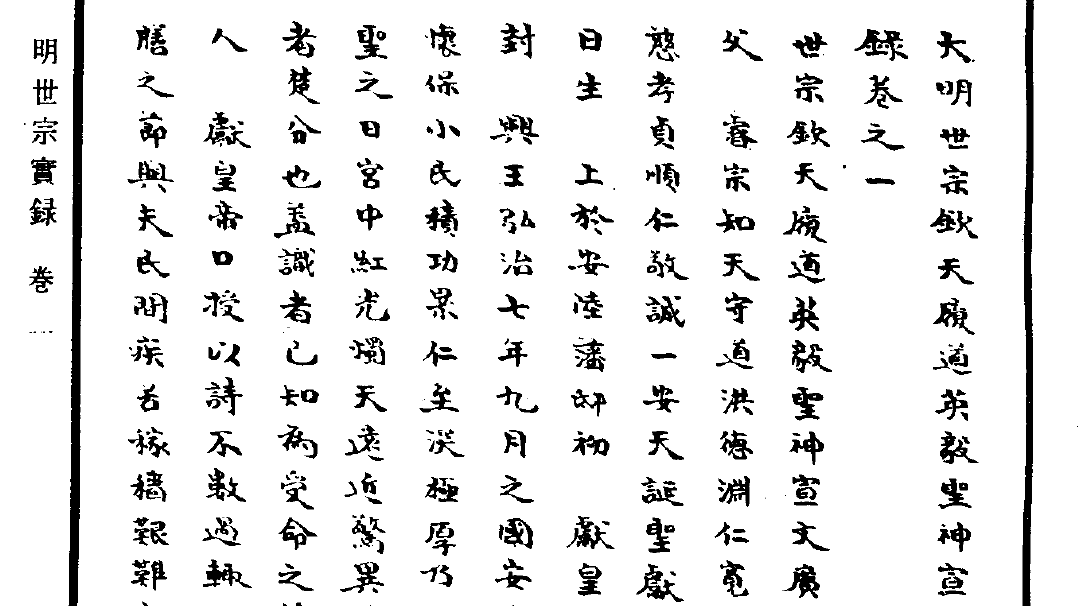 大明世宗欽天履道英毅聖神宣
錄卷之一
世宗欽天履道英毅聖神宣文廣
父 睿宗知天守道洪德淵仁寬
慈孝貞順仁敬誠一安天誕聖獻
日生 上於安陸藩邸初 獻皇
封 興王弘治七年九月之國安
懷保小民積功累仁至深極厚乃
聖之日宮中紅光燭天遠近驚異
者楚分也蓋識者已知為受命之
人 獻皇帝口授以詩不數過輒
膳之節與夫民間疾苦稼穡艱難
明世宗實録 卷一